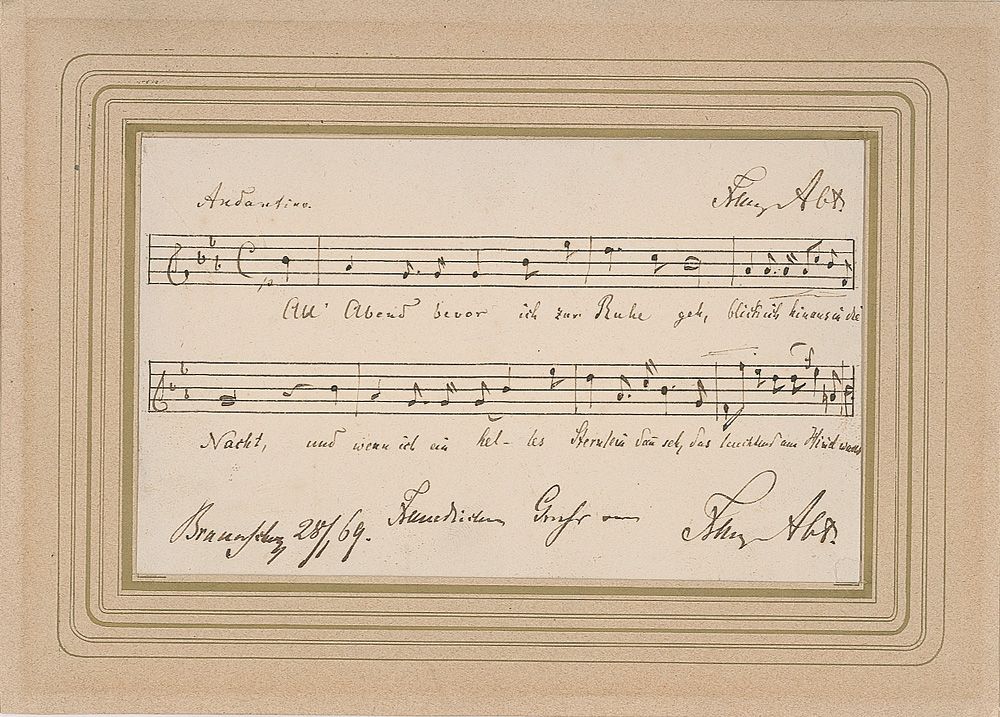 Andantino. Franz Abt.
p
All' Abend bevor ich zur Ruhe geh, blick ich hinaus in die
f
Nacht, und wenn ich ein hel- les Sternlein dan seh, das leuchtend am Himmel
Freundlichen Gruß von
Braunschwg 28/1 69. Franz Abt.